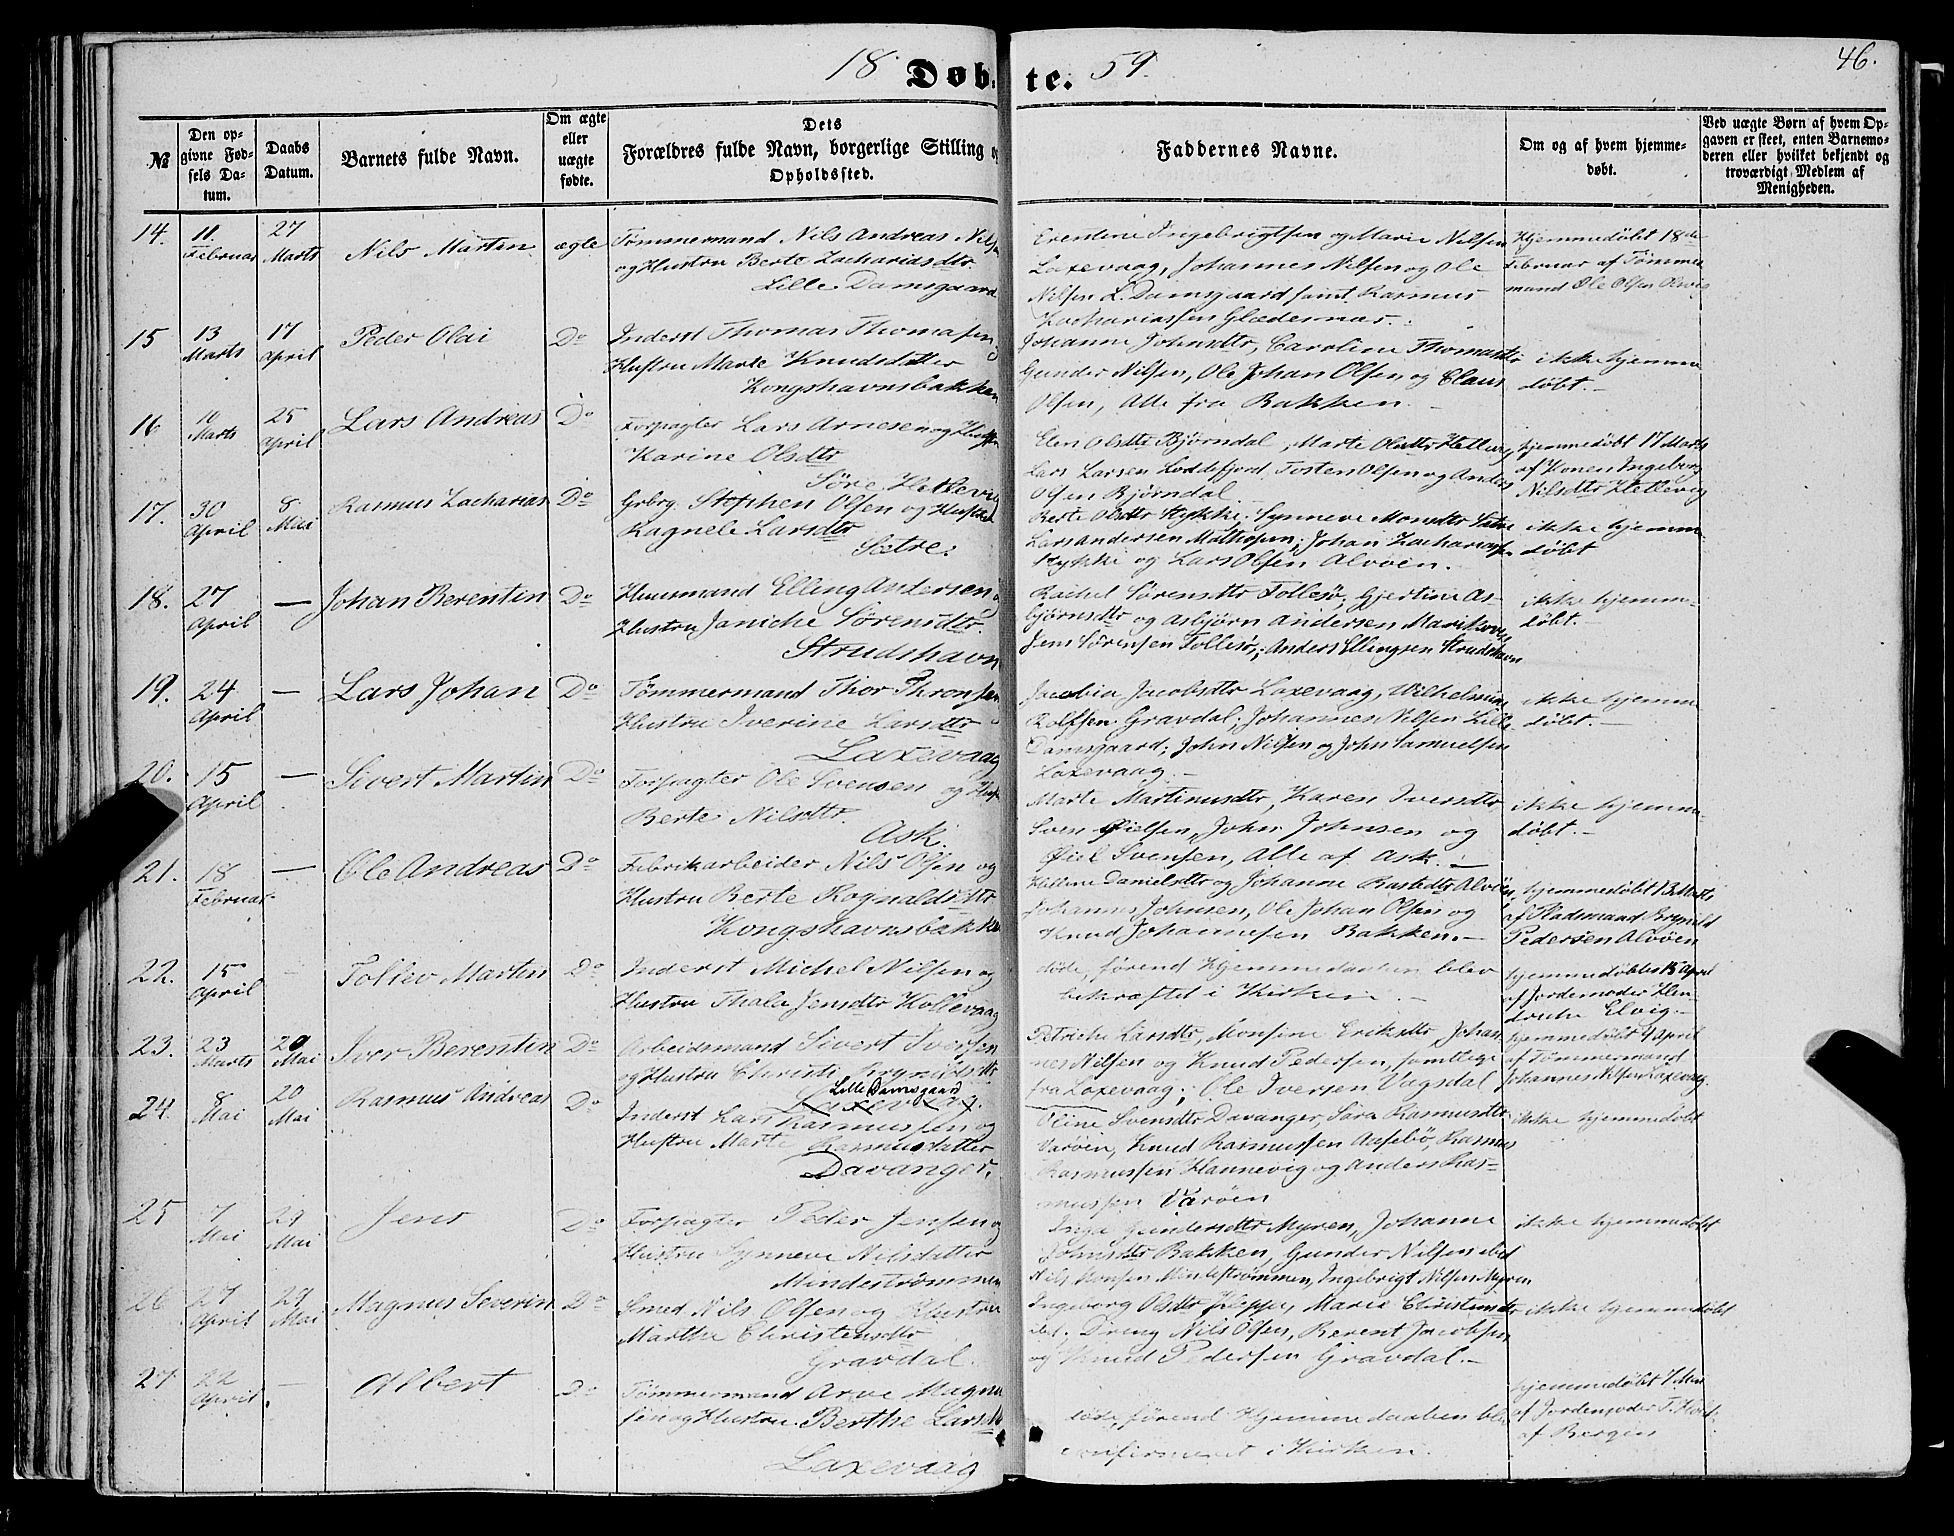 18 Døb- te. 59.
46.
№
Den opgivne Fødsels Datum.
Daabs Datum.
Barnets fulde Navn.
Om ægte eller uægte fødte.
Dets Forældres fulde Navn, borgerlige Stilling og Opholdssted.
Faddernes Navne.
Om og af hvem hjemmedøbt.
Ved uægte Børn af hvem Opgaven er skeet, enten Barnemoderen eller hvilket bekjendt og troværdigt Medlem af Menigheden.
14. 11 Februar 27 Marts Nils Marten ægte
Tømmermand Nils Andreas Nilsen
og Hustru Berte Zachariasdtr
Lille Damsgaard
Erentine Ingebrigtsen og Marie Nilsen
Laxevaag, Johannes Nilsen og Ole
Nilsen L. Damsgaard samt Rasmus
Zachariassen
Hjemmedøbt 18de
Februar af Tømmer
mand Ole Olsen
15 13 Marts 17 April Peder Olai Do
Inderst Thomas Thomasen
Hustru Marte Knudsdatter
Kongshavnsbakken
Johanne Johnsdtr, Caroline Thomasdtr
Gunder Nilsen, Ole Johan Olsen og Claus
Olsen, Alle fra Bakken.
ikke hjemme
døbt.
16 10 Marts 25 April Lars Andreas Do
Forpagter Lars Arnesen og Hustru
Karine Olsdtr
Søre Hetlevig
Elen Olsdtr Bjørndal, Marte Olsdtr Hetlevig
Lars Larsen Loddefjord, Tosten Olsen og Anders
Olsen Bjørndal.
hjemmedøbt 17 Marts
af Konen Ingeborg
Nilsdtr Hetlevig
17. 30 April 8 Mai Rasmus Zacharias Do
Grbrg. Stephen Olsen og Hustru
Ragnele Larsdtr
Sætre.
Berte Olsdtr Stykke, Synneve Monsdtr Sætre
Lars Andersen Mathopen, Johan Zachariasen
Stykke og Lars Olsen Alvøen.
ikke hjemme
døbt
18. 27 April — Johan Berentin Do
Huusmand Elling Andersen og
Hustru Janiche Sørensdtr.
Strudshavn
Rachel Sørensdtr Follesø, Gjertine As-
bjørnsdtr og Asbjørn Andersen
Jens Sørensen Follesø, Anders Ellingsen Strudshavn
ikke hjemme-
døbt.
19. 24 April — Lars Johan Do
Tømmermand Thor Thronsen
Hustru Iverine Larsdtr
Laxevaag
Jacobia Jacobsdtr Laxevaag, Wilhelmine
Rolfsen Gravdal, Johannes Nilsen Lille
Damsgaard, John Nilsen og John Samuelsen
Laxevaag.
ikke hjemme
døbt.
20. 15 April — Sivert Martin Do
Forpagter Ole Svensen og Hustr
Berte Nilsdtr.
Ask.
Marte Martinusdtr, Karen Iversdtr
Sven Øielsen, John Johnsen og
Øiel Svensen, Alle af Ask.
ikke hjemme
døbt.
21. 18 Februar — Ole Andreas Do
Fabrikarbeider Nils Olsen og
Hustru Berte Rognaldsdtr
Kongshavnsbakken
Helene Danielsdtr og Johanne Alvøen,
Johannes Johnsen, Ole Johan Olsen og
Knud Johannesen Bakken.
hjemmedøbt 13 Marts
af Pladsmand Brynild
Pedersen Alvøen
22. 15 April Tollev Marten Do
Inderst Michel Nilsen og
Hustru Thala Jensdtr Kollevaag
døde, førend Hjemmedaaben blev
bekræftet i Kirken.
hjemmedøbt 15 April
af Jordemoder Hen-
drikke Elvig.
23. 23 Marts 20 Mai Iver Berentin Do
Arbeidsmand Sivert Iversen
og Hustru Christi Brynildsdtr
Lille Damsgaard
Laxevaag.
Petriche Larsdtr, Monsine Eriksdtr, Johan
nes Nilsen og Knud Pedersen, samtlige
fra Laxevaag; Ole Iversen Vagsdal
hjemmedøbt 4 April
af Tømmermand
Johannes Nilsen Laxevaag.
24. 8 Mai 20 Mai Rasmus Andreas Do
Inderst Lars Rasmussen og
Hustru Marte Rasmusdatter
Davanger.
Oline Svensdtr Davanger, Sara Rasmusdtr
Varøen, Knud Rasmussen Aasebø, Rasmus
Rasmussen Hannevig og Anders Ras-
mussen Varøen
ikke hjemmedøbt
25 7 Mai 29 Mai Jens Do
Forpagter Peder Jensen og
Hustru Synneve Nilsdatter
Mindestrømmen
Inga Gundersdtr Myren, Johanne
Johnsdtr Bakken, Gunder Nilsen ibid
Nils Monsen Mindestrømmen, Ingebrigt Nilsen Myren
ikke hjemmedøbt
26 27 April 29 Mai Magnus Severin Do
Smed Nils Olsen og Hustru
Marthe Christensdtr
Gravdal.
Ingeborg Olsdtr Kleppe, Marie Christensdtr
ibd. Dreng Nils Olsen, Berent Jacobsen
og Knud Pedersen Gravdal.
ikke hjemmedøbt
27 22 April — Albert Do
Tømmermand Arve Magnu
sen og Hustru Berthe Larsdtr
Laxevaag
døde, førend Hjemmedaaben blev
confirmeret i Kirken.
hjemmedøbt 7 Mai
af Jordemoder
af Bergen